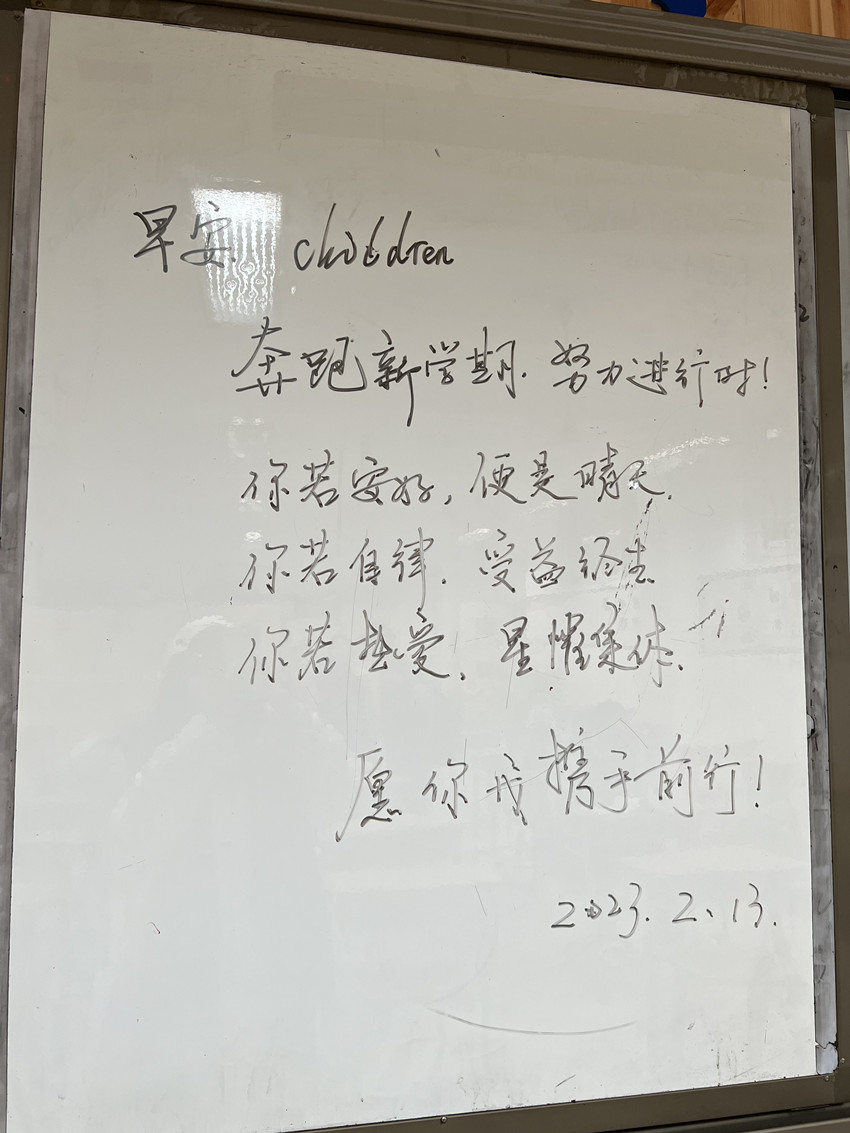 早安 children
奔跑新学期. 努力进行时!
你若安好, 便是晴天.
你若自律. 受益终生
你若热爱. 星耀集体.
愿你我携手前行!
2023. 2. 13.